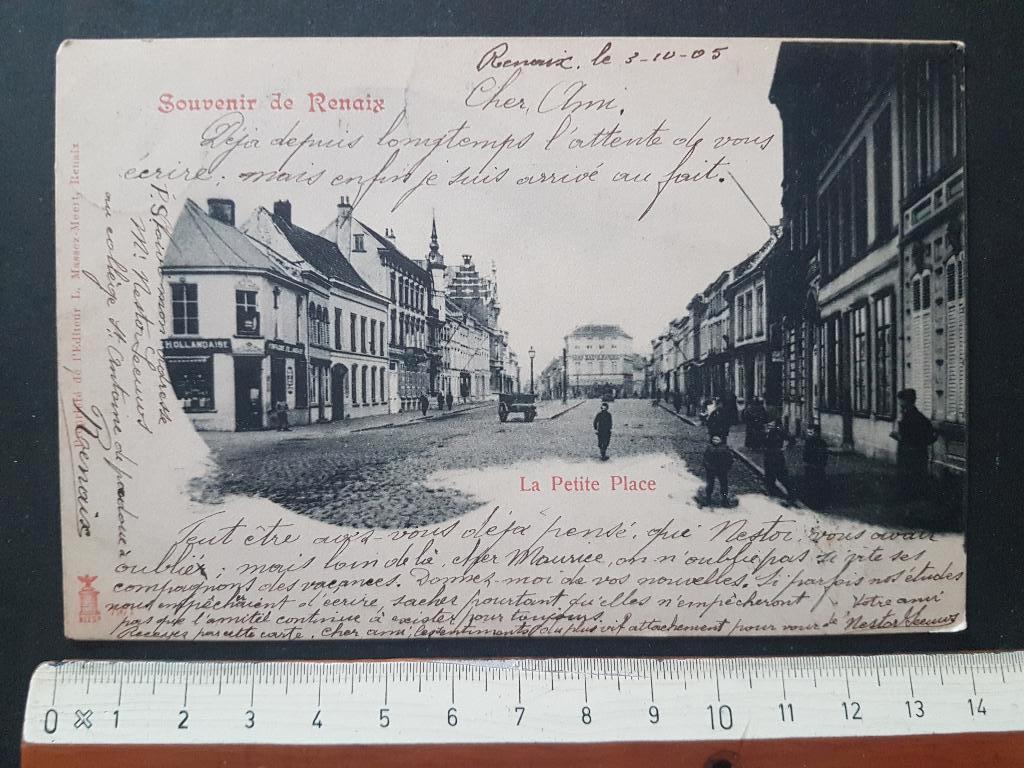 Renaix, le 3-10-05
Souvenir de Renaix
Cher Ami,
Déjà depuis longtemps l'attente de vous
écrire; mais enfin je suis arrivé au fait.
P.S. Voici mon adresse
Mr Nestor Leeuws
au collège St. Antoine de padoue à
Renaix
de l'Editeur L. Massez-Meert, Renaix
HOLLANDAISE
La Petite Place
Peut être avez-vous déjà pensé, que Nestor, vous avait
oublier; mais loin de là, cher Maurice, on n'oublie pas si vite ses
compagnons des vacances. Donnez-moi de vos nouvelles. Si parfois nos études
nous empêchaient d'écrire, sachez pourtant qu'elles n'empêcheront
pas que l'amitié continue à exister pour toujours.
Recevez par cette carte, cher ami, les sentiments du plus vif attachement pour vous de
Votre ami
Nestor Leeuws
0 1 2 3 4 5 6 7 8 9 10 11 12 13 14